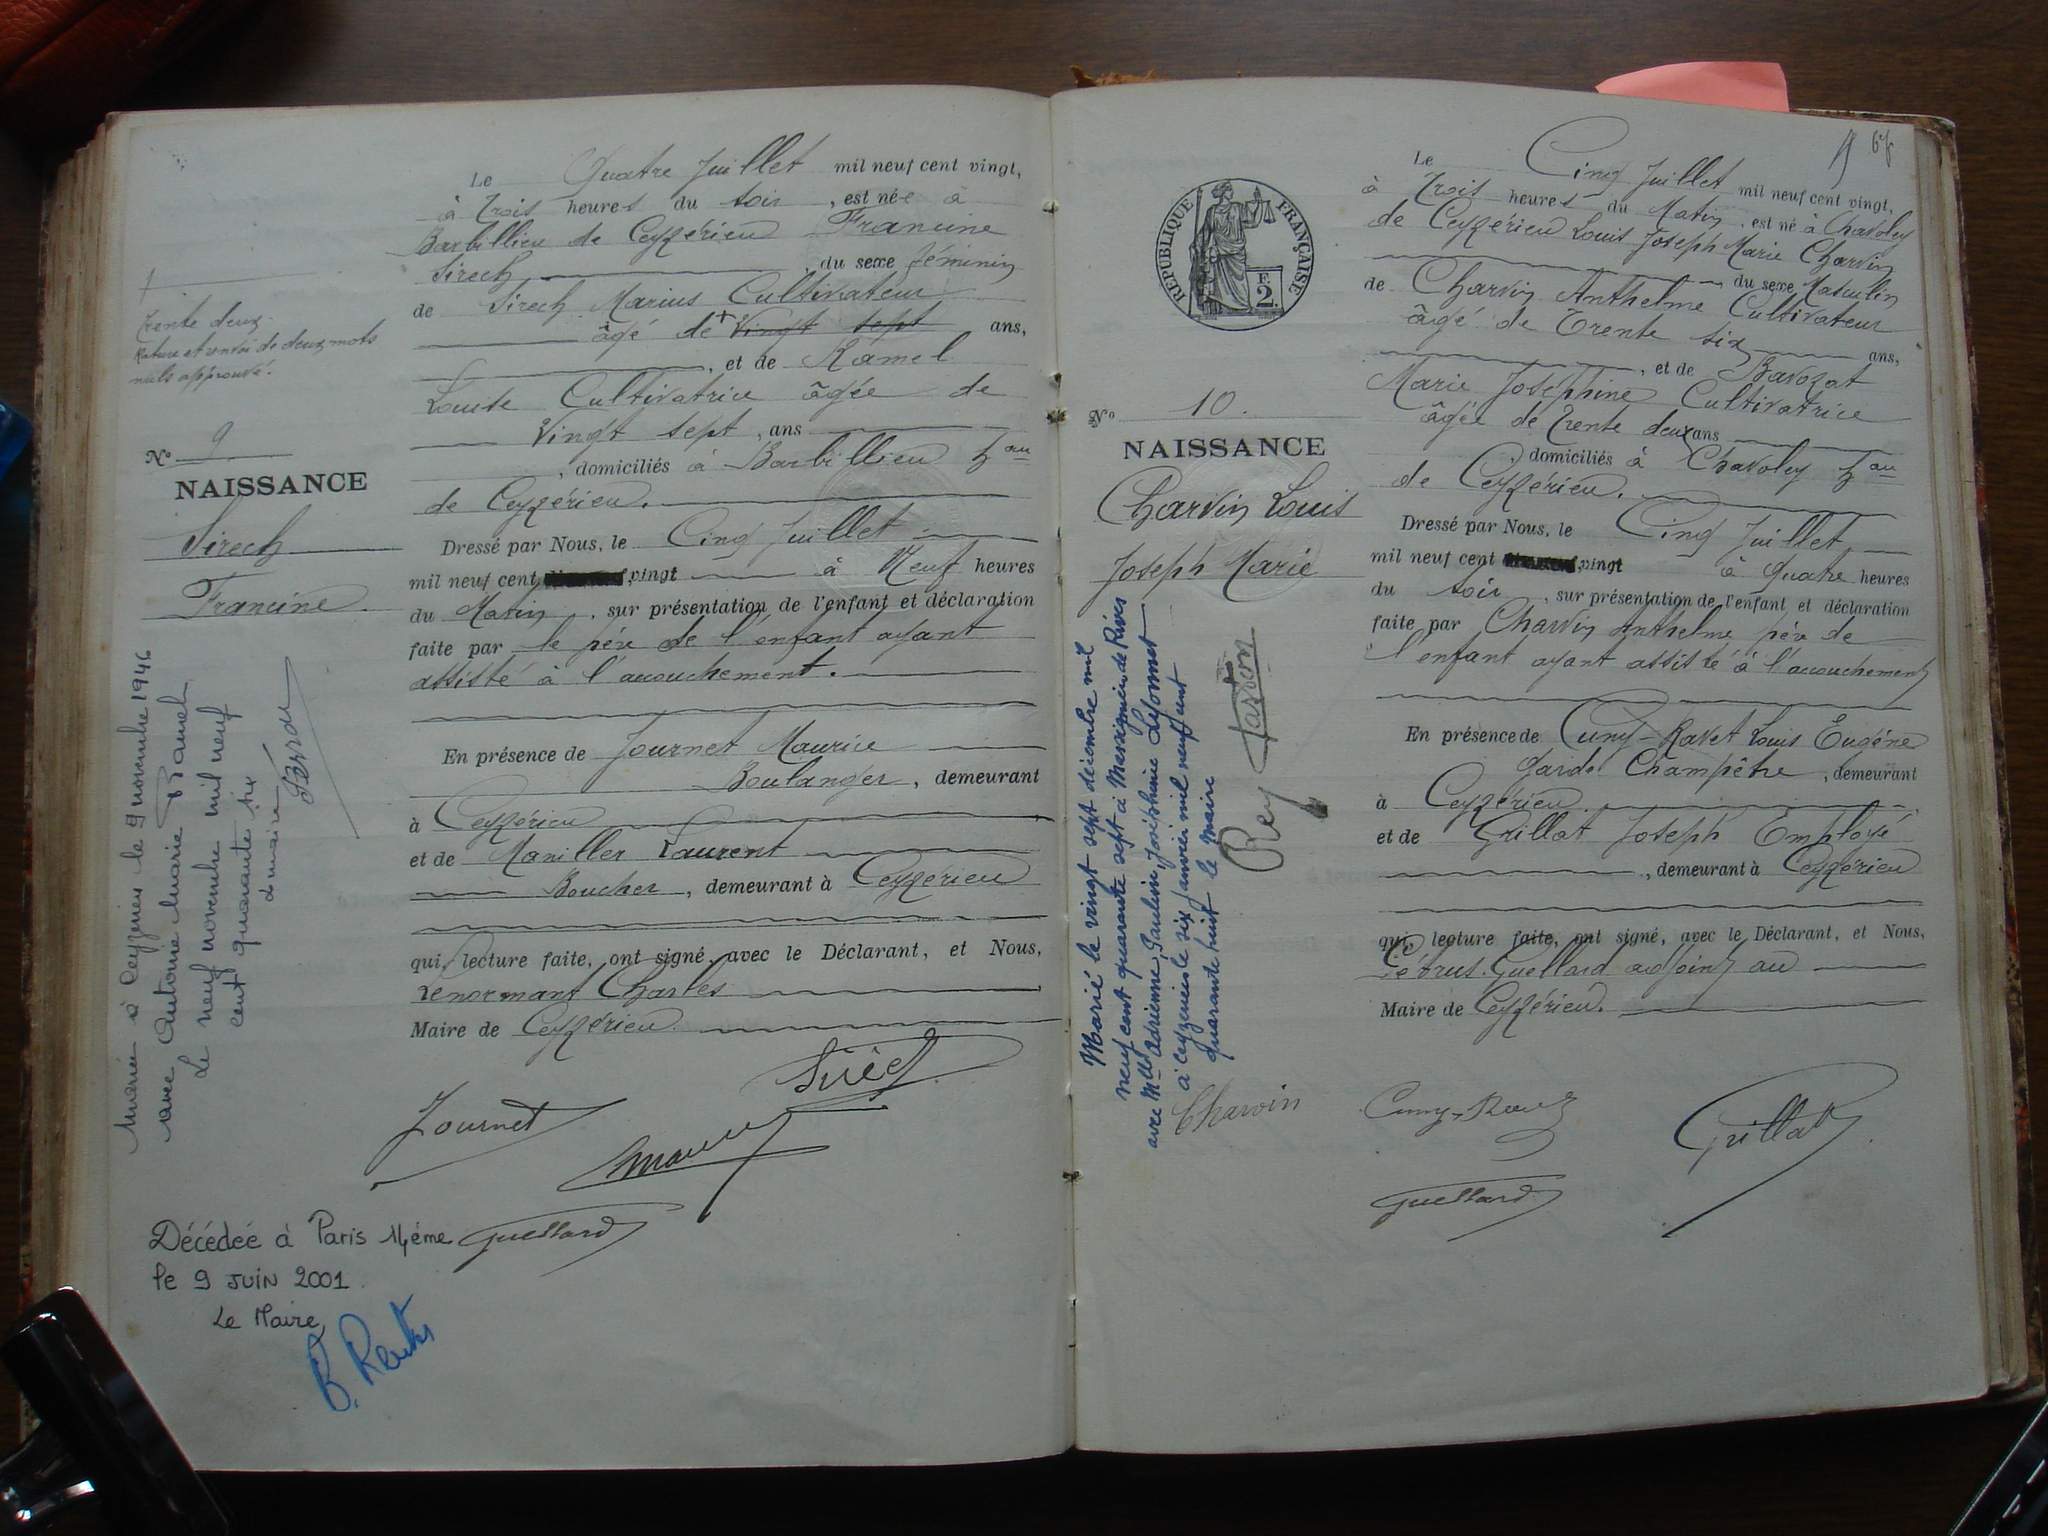 Le Quatre Juillet mil neuf cent vingt,
à Trois heures du soir, est née à
Barbillieu de Ceyzérieu Francine
Sirech du sexe féminin
de Sirech Marius Cultivateur
âgé de + vingt sept ans,
, et de Ramel
Louise Cultivatrice âgée de
Vingt sept, ans
, domiciliés à Barbillieu hau
de Ceyzérieu.
Dressé par Nous, le Cinq Juillet
mil neuf cent vingt à Neuf heures
du Matin, sur présentation de l'enfant et déclaration
faite par le père de l'enfant ayant
assisté à l'accouchement.
En présence de Journet Maurice
Boulanger, demeurant
à Ceyzérieu
et de Maniller Laurent
Boucher, demeurant à Ceyzérieu
qui, lecture faite, ont signé, avec le Déclarant, et Nous,
Lenormant Charles
Maire de Ceyzérieu.
Journet
Guellard
+
Trente deux.
Rature et renvoi de deux mots
nuls approuvé.
No 9
NAISSANCE
Sirech
Francine
Mariée à Ceyzérieu le 9 novembre 1946
avec Antoine Marie
Le neuf novembre mil neuf
cent quarante six
Le maire
Décédée à Paris 14ème
le 9 JUIN 2001.
Le Maire,
67
Le Cinq Juillet mil neuf cent vingt,
à Trois heures du Matin, est né à Chavoley
de Ceyzérieu Louis Joseph Marie Charvin
du sexe Masculin
de Charvin Anthelme Cultivateur
âgé de Trente six ans,
, et de Bavozat
Marie Joséphine Cultivatrice
âgée de Trente deux ans
, domiciliés à Chavoley hau
de Ceyzérieu.
Dressé par Nous, le Cinq Juillet
mil neuf cent vingt à Quatre heures
du soir, sur présentation de l'enfant et déclaration
faite par Charvin Anthelme père de
l'enfant ayant assisté à l'accouchement
En présence de Cuny-Ravet Louis Eugène
Garde Champêtre, demeurant
à Ceyzérieu.
et de Grillat Joseph Employé
, demeurant à Ceyzérieu
qui, lecture faite, ont signé, avec le Déclarant, et Nous,
Pétrus Guellard adjoint au
Maire de Ceyzérieu.
Charvin
Grillat
Guellard
REPUBLIQUE FRANÇAISE
F.
2.
No 10.
NAISSANCE
Charvin Louis
Joseph Marie
Marié le vingt sept décembre mil
neuf cent quarante sept à Massignieu de Rives
avec Mlle Adrienne Pauline Joséphine Lyonnet
à Ceyzérieu le six janvier mil neuf cent
quarante huit le Maire
Rey